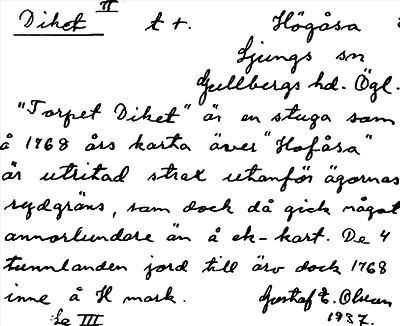 Diket II t t. Högåsa
Ljungs sn
Gullbergs hd. Ögl.
"Torpet Diket" är en stuga som
å 1768 års karta över "Hofåsa"
är utritad strax utanför ägornas
sydgräns, som dock då gick något
annorlundare än å ek-kart. De 4
tunnlanden jord till äro dock 1768
inne å H mark. Gustaf E. Olsson
Se III 1937.